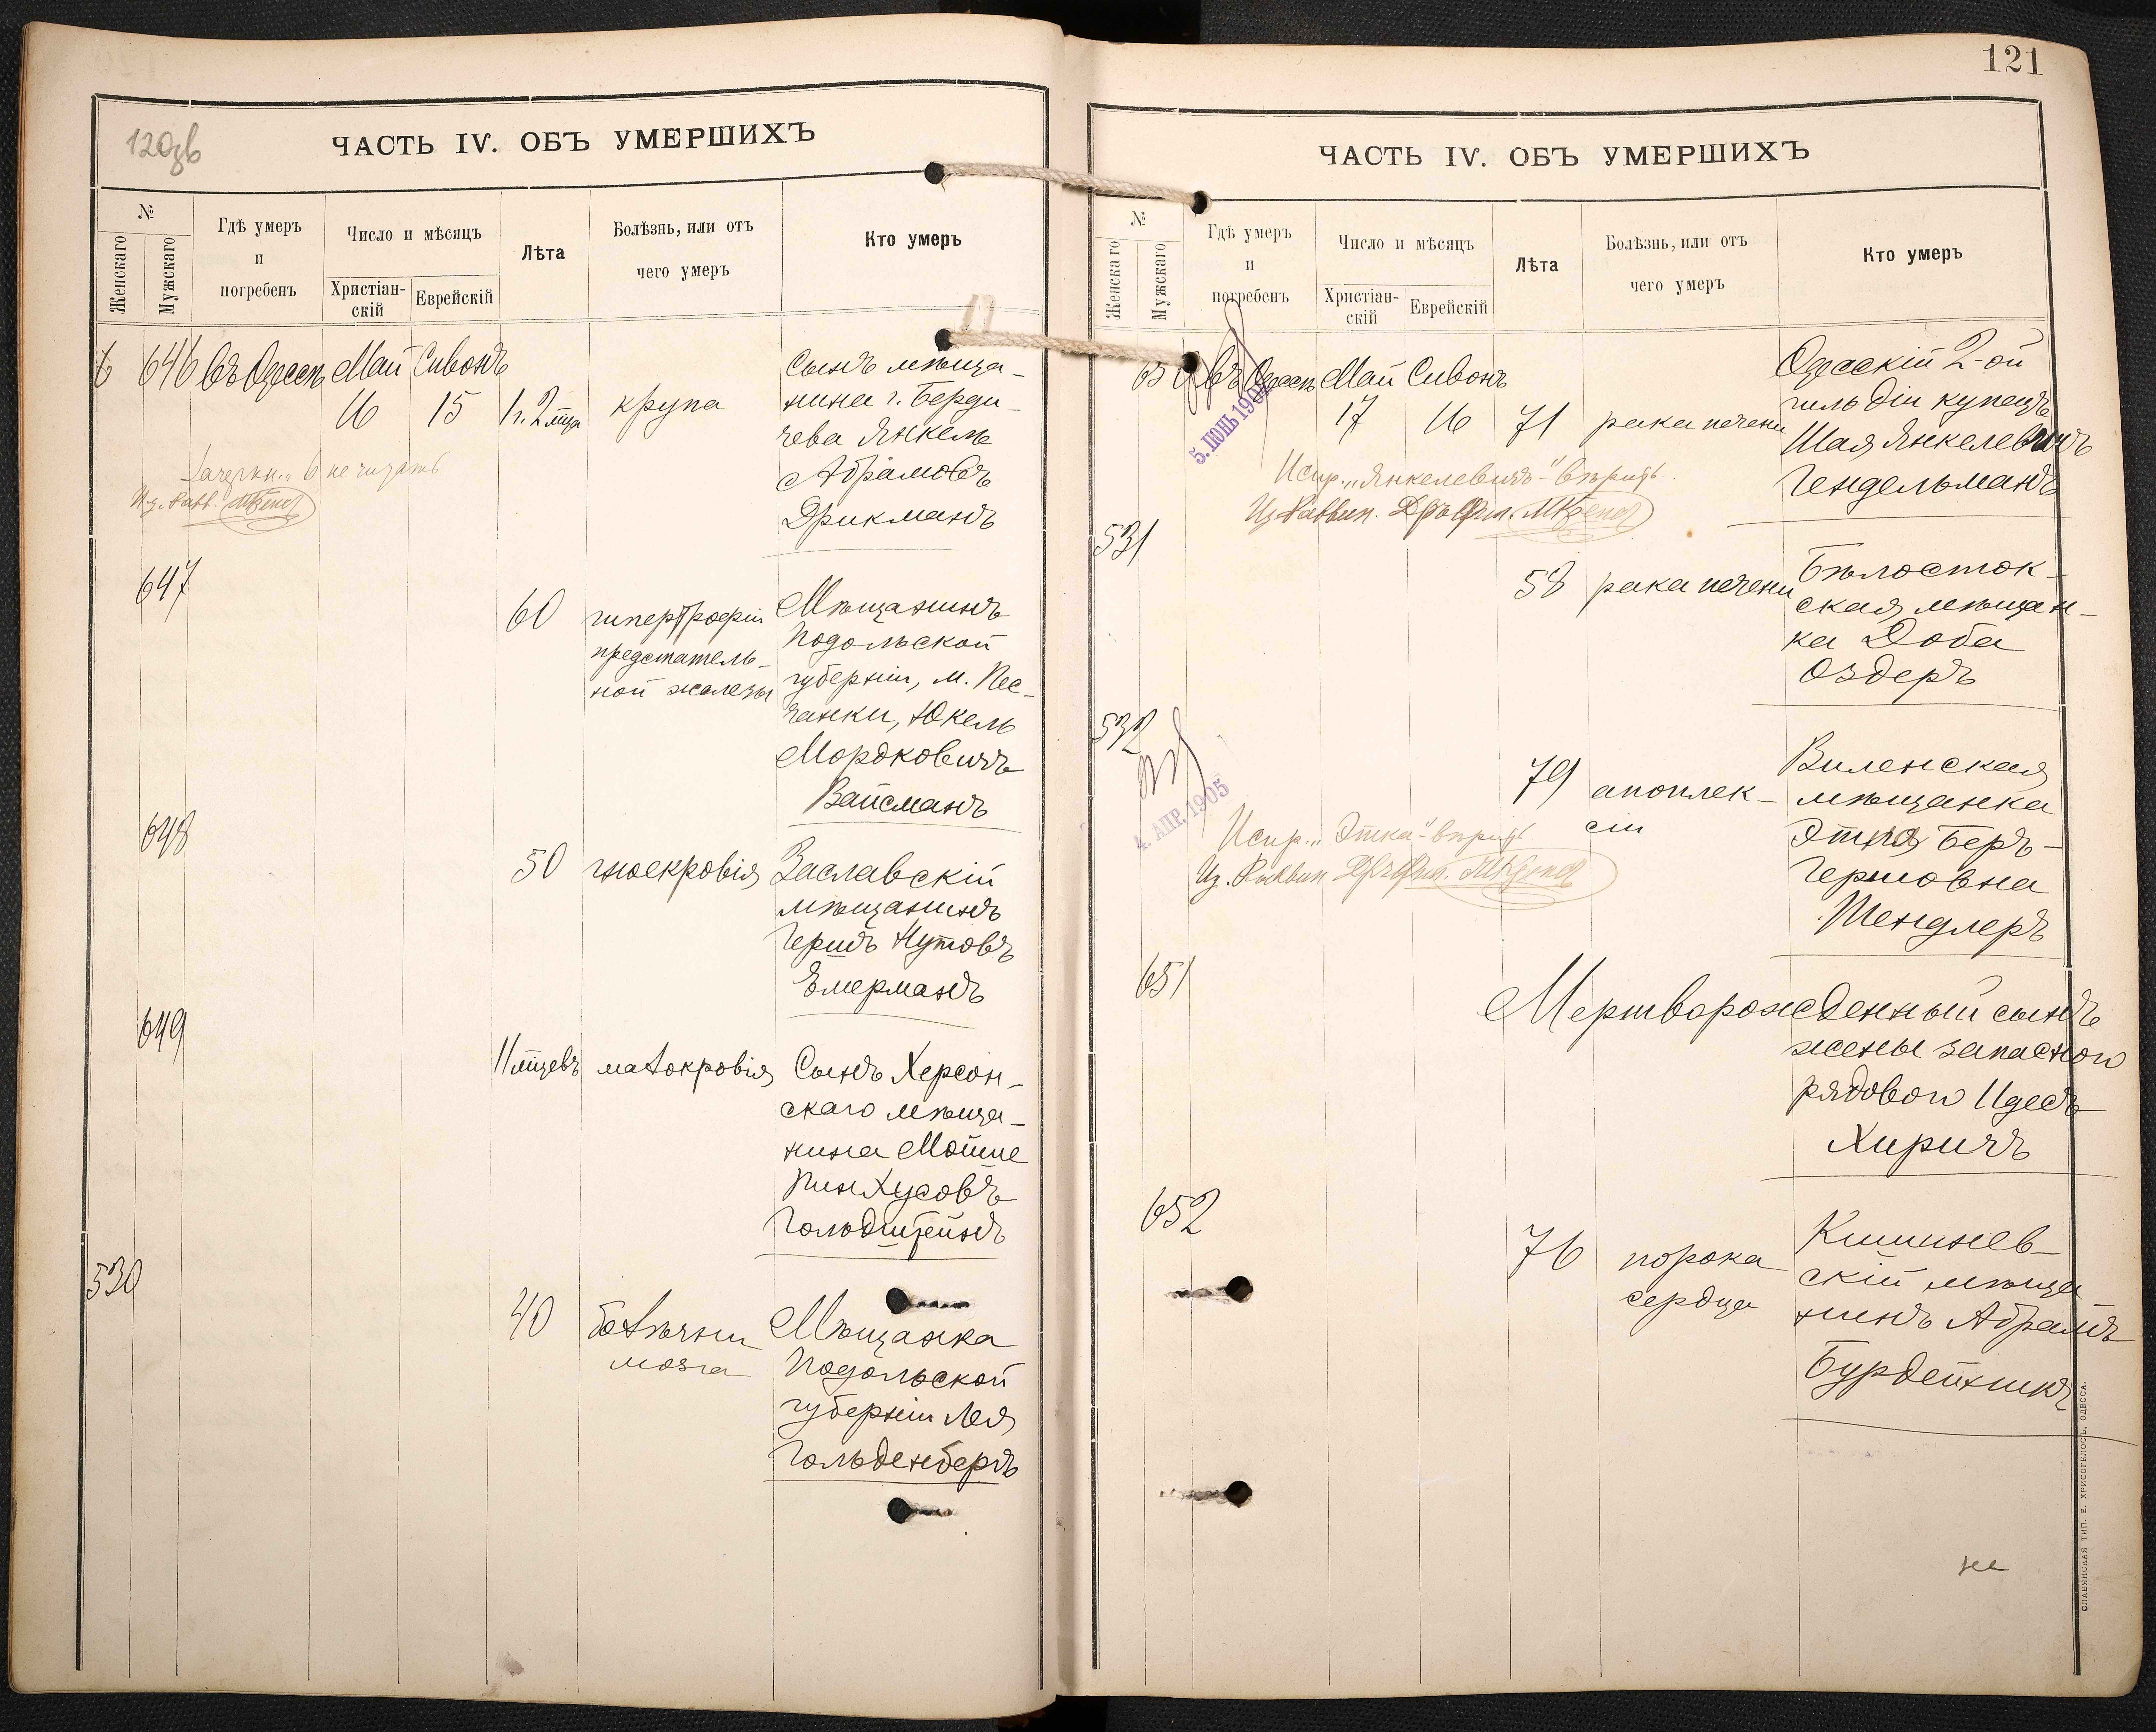 120зв
ЧАСТЬ IV. ОБЪ УМЕРШИХЪ
№
Женскаго
Мужскаго
Гдѣ умеръ
и
погребенъ
Число и мѣсяцъ
Христіан-
скій
Еврейскій
Лѣта
Болѣзнь, или отъ
чего умеръ
Кто умеръ
6 646 Въ Одессѣ Май Сивонъ
16 15 1 г. 2 мца крупа
Сынъ мѣща-
нина г. Берди-
чева Янкель
Абрамовъ
Дрикманъ
Зачеркн. „6 не читать
647
60
гипертрофіи
предстатель-
ной железы
Мѣщанинъ
Подольской
губерніи, м. Пес-
чанки, Юкель
Мордковичъ
Вайсманъ
648
50 гноекровія
Заславскій
мѣщанинъ
Гершъ Нутовъ
Емерманъ
649
11 мцевъ малокровія
Сынъ Херсон-
скаго мѣща-
нина Мойше
Пинхусовъ
Гольдштейнъ
530
40
болѣзни
мозга
Мѣщанка
Подольской
губерніи Лея
Гольденбергъ
121
ЧАСТЬ IV. ОБЪ УМЕРШИХЪ
№
Женскаго
Мужскаго
Гдѣ умеръ
и
погребенъ
Число и мѣсяцъ
Христіан-
скій
Еврейскій
Лѣта
Болѣзнь, или отъ
чего умеръ
Кто умеръ
650 Въ Одессѣ Май Сивонъ
17 16 71 рака печени
5. ІЮНЬ 190
Одесскій 2-ой
гильдіи купецъ
Шая Янкелевичъ
Гендельманъ
Испр. „Янкелевичъ“ вѣрить.
531
58 рака печени
Бѣлосток-
ская мѣщан-
ка Доба
Оздеръ
532
4. АПР. 1905
79
апоплек-
сіи
Виленская
мѣщанка
Этка Беръ-
Гершовна
Шендлеръ
Испр. „Этка“ вѣрить
651
Мертворожденный сынъ
жены запасного
рядового Идесъ
Хиричъ
652
76
порока
сердца
Кишинев-
скій мѣща
нинъ Абрамъ
Бурдейникъ
СЛАВЯНСКАЯ ТИП. Е. ХРИСОГЕЛОСЪ, ОДЕССА.